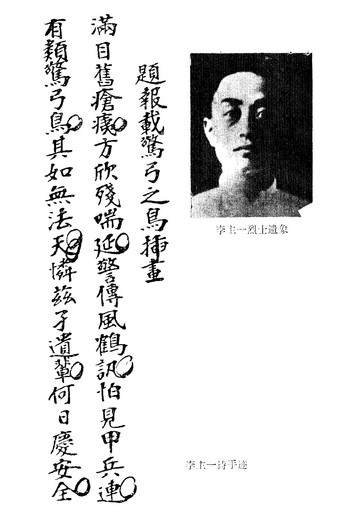 題報載驚弓之鳥插畫
滿目舊瘡痍。方欣殘喘延。警傳風鶴訊。怕見甲兵連。
有類驚弓鳥。其如無法天。憐茲孑遺輩。何日慶安全。
李主一烈士遺象
李主一诗手迹